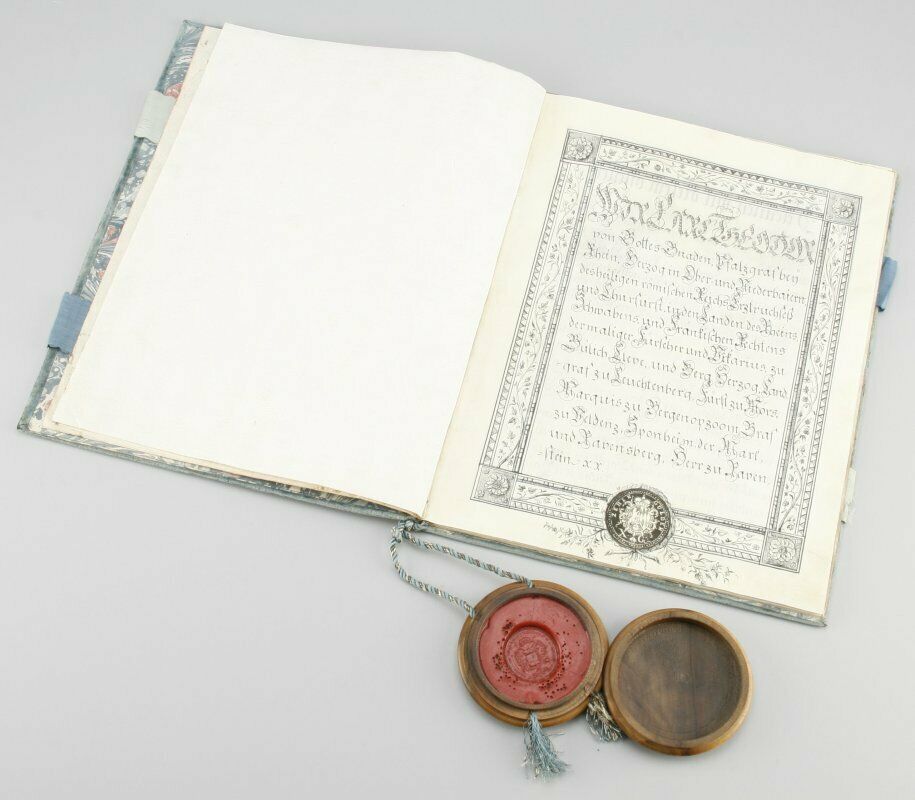 Wir Carl Theodor
von Gottes Gnaden, Pfalzgraf beÿ
Rhein, Herzog in Ober- und Niederbaiern
des heiligen römischen Reichs Erztruchseß
und Churfürst, in den Landen des Rheins
Schwabens, und Fränkischen Rechtens
dermaliger Fürseher und Vikarius, zu
Gülich, Cleve, und Berg Herzog, Land
-graf zu Leuchtenberg, Fürst zu Mörs
Marquis zu Bergenopzoom, Graf
zu Veldenz, Sponheim, der Mark
und Ravensberg, Herr zu Raven
-stein xx